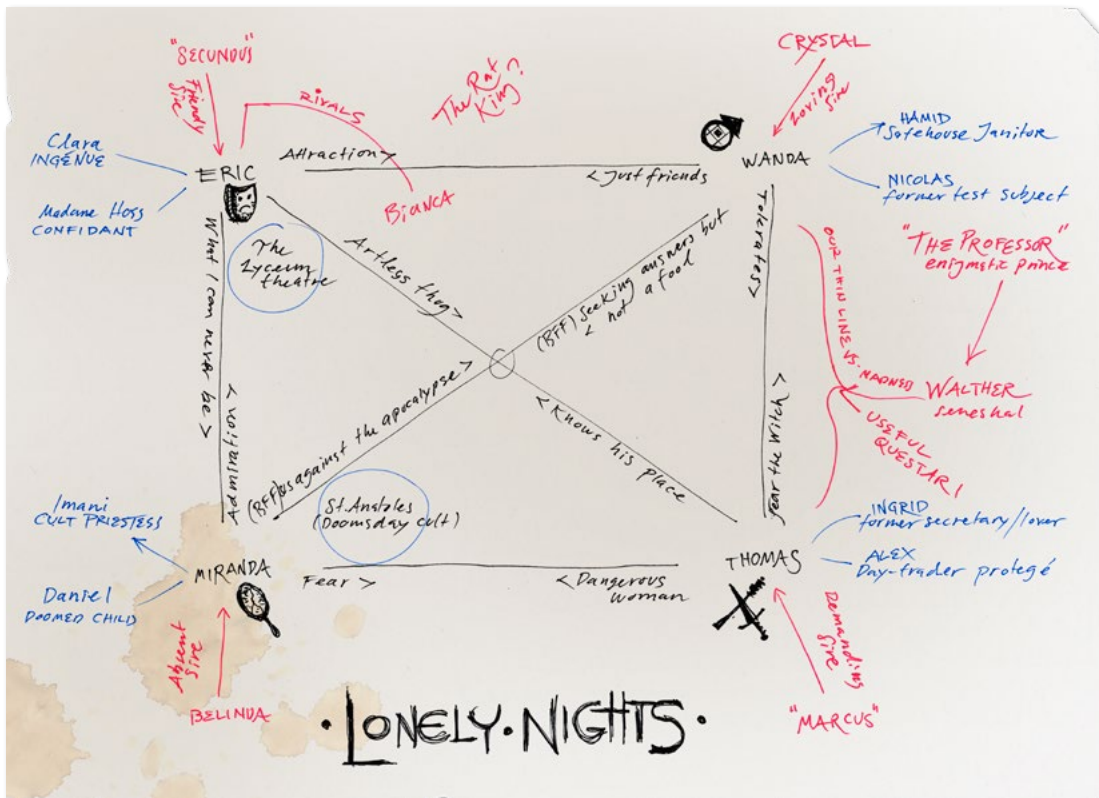 "SECUNDUS"
Friendly
Sire
RIVALS
The Rat
King?
CRYSTAL
Loving sire
Clara
INGENUE
ERIC
Attraction >
< Just friends
WANDA
HAMID
Safehouse Janitor
NICOLAS
former test subject
Madame Hoss
CONFIDANT
BIANCA
The
Lyceum
theatre
What I can never be >
< Admiration
Artless thug >
< Knows his place
(BFF) Seeking answers but
< not a food
(BFF) us against the apocalypse >
Tolerates >
Fear the Witch >
OUR THIN LINE VS. MADNESS
"THE PROFESSOR"
enigmatic prince
WALTHER
seneshal
USEFUL
QUESTARI
Imani
CULT PRIESTESS
Daniel
DOOMED CHILD
MIRANDA
St. Anatoles
(Doomsday cult)
Fear >
< Dangerous
woman
THOMAS
INGRID
former secretary/lover
ALEX
Day-trader protegé
Absent
Sire
BELINDA
Demanding
Sire
"MARCUS"
· LONELY · NIGHTS ·